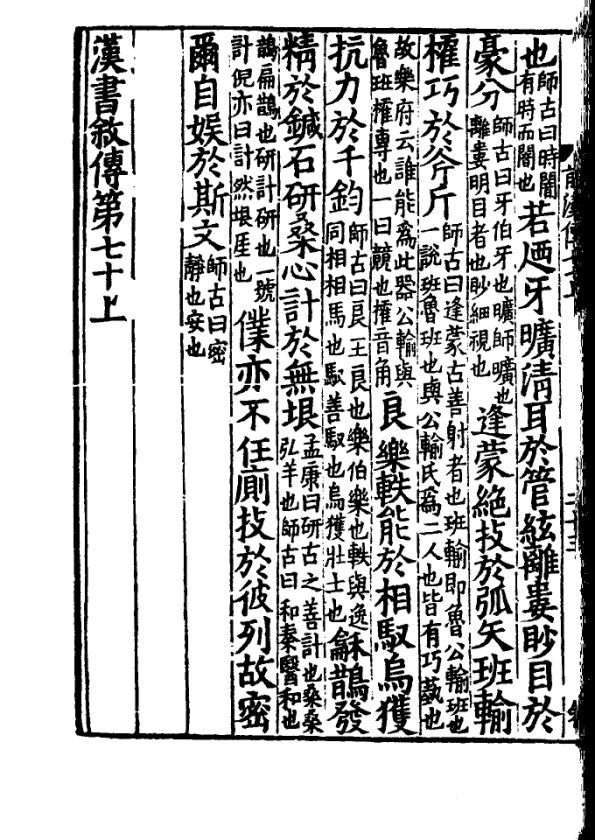 也師古曰時闇有時而闇也若廼牙曠清耳於管絃離婁眇目於
豪分師古曰牙伯牙也曠師曠也離婁明目者也眇細視也逢蒙絕技於弧矢班輸
榷巧於斧斤師古曰逢蒙古善射者也班輸即魯公輸班也一說班魯班也與公輸氏為二人也皆有巧藝也
故樂府云誰能為此器公輸與魯班榷專也一曰競也榷音角良樂軼能於相馭烏獲
抗力於千鈞師古曰良王良也樂伯樂也軼與逸同相相馬也馭善馭也烏獲壯士也龢鵲發
精於鍼石研桑心計於無垠孟康曰研古之善計也桑桑弘羊也師古曰和秦醫和也
鵲扁鵲也研計研也一號計倪亦曰計然垠厓也僕亦不任廁技於彼列故密
爾自娛於斯文師古曰密靜也安也
漢書敘傳第七十上